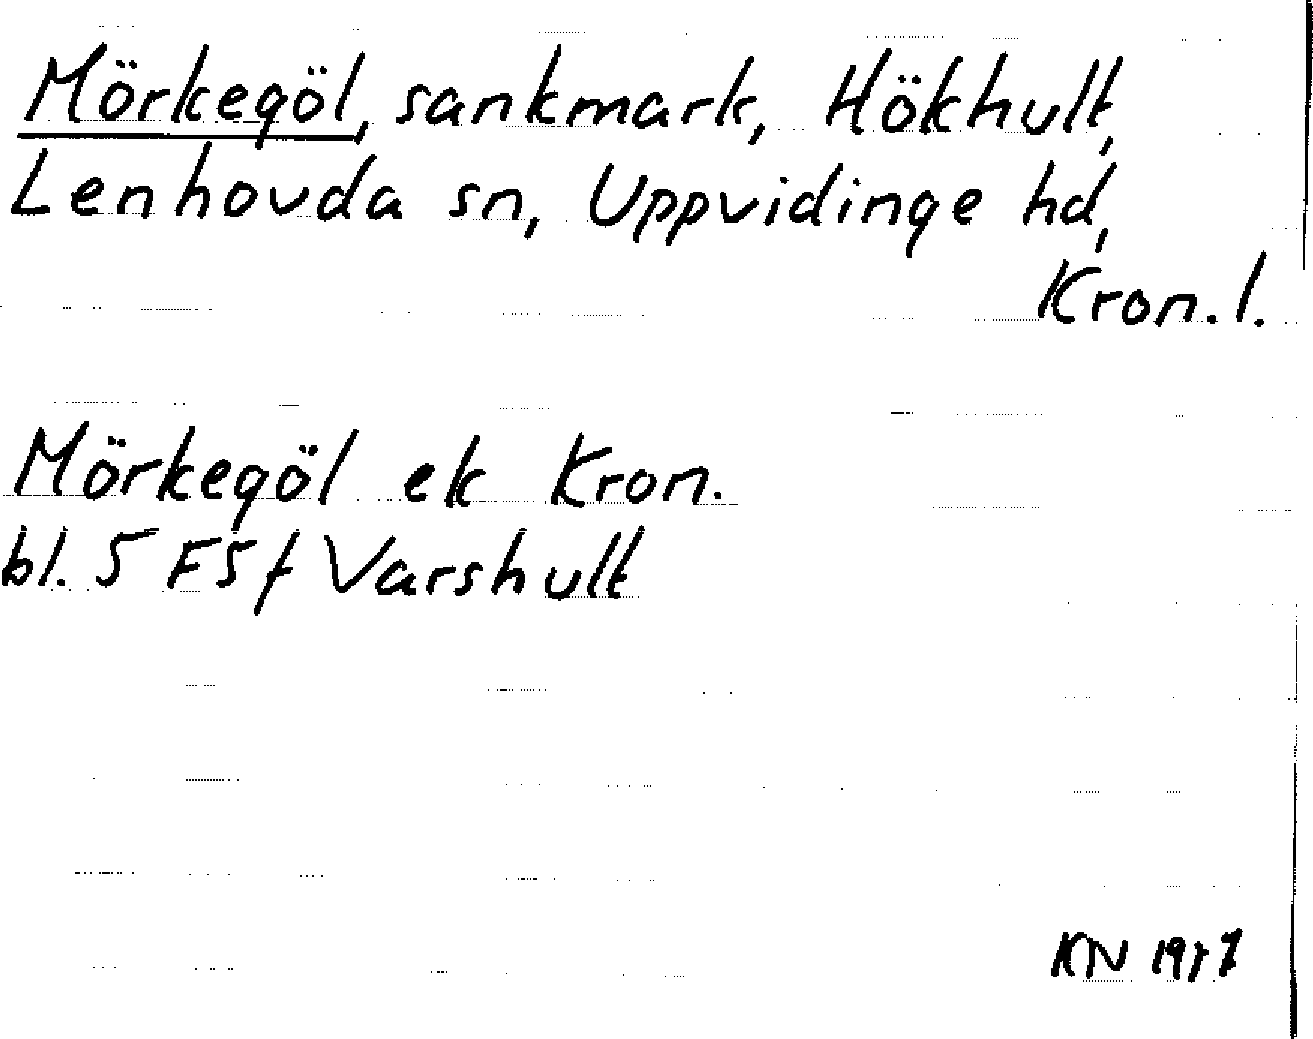 Mörkegöl, sankmark, Hökhult,
Lenhovda sn, Uppvidinge hd,
Kron. l.
Mörkegöl ek Kron.
bl. 5 F5f Varshult
KN